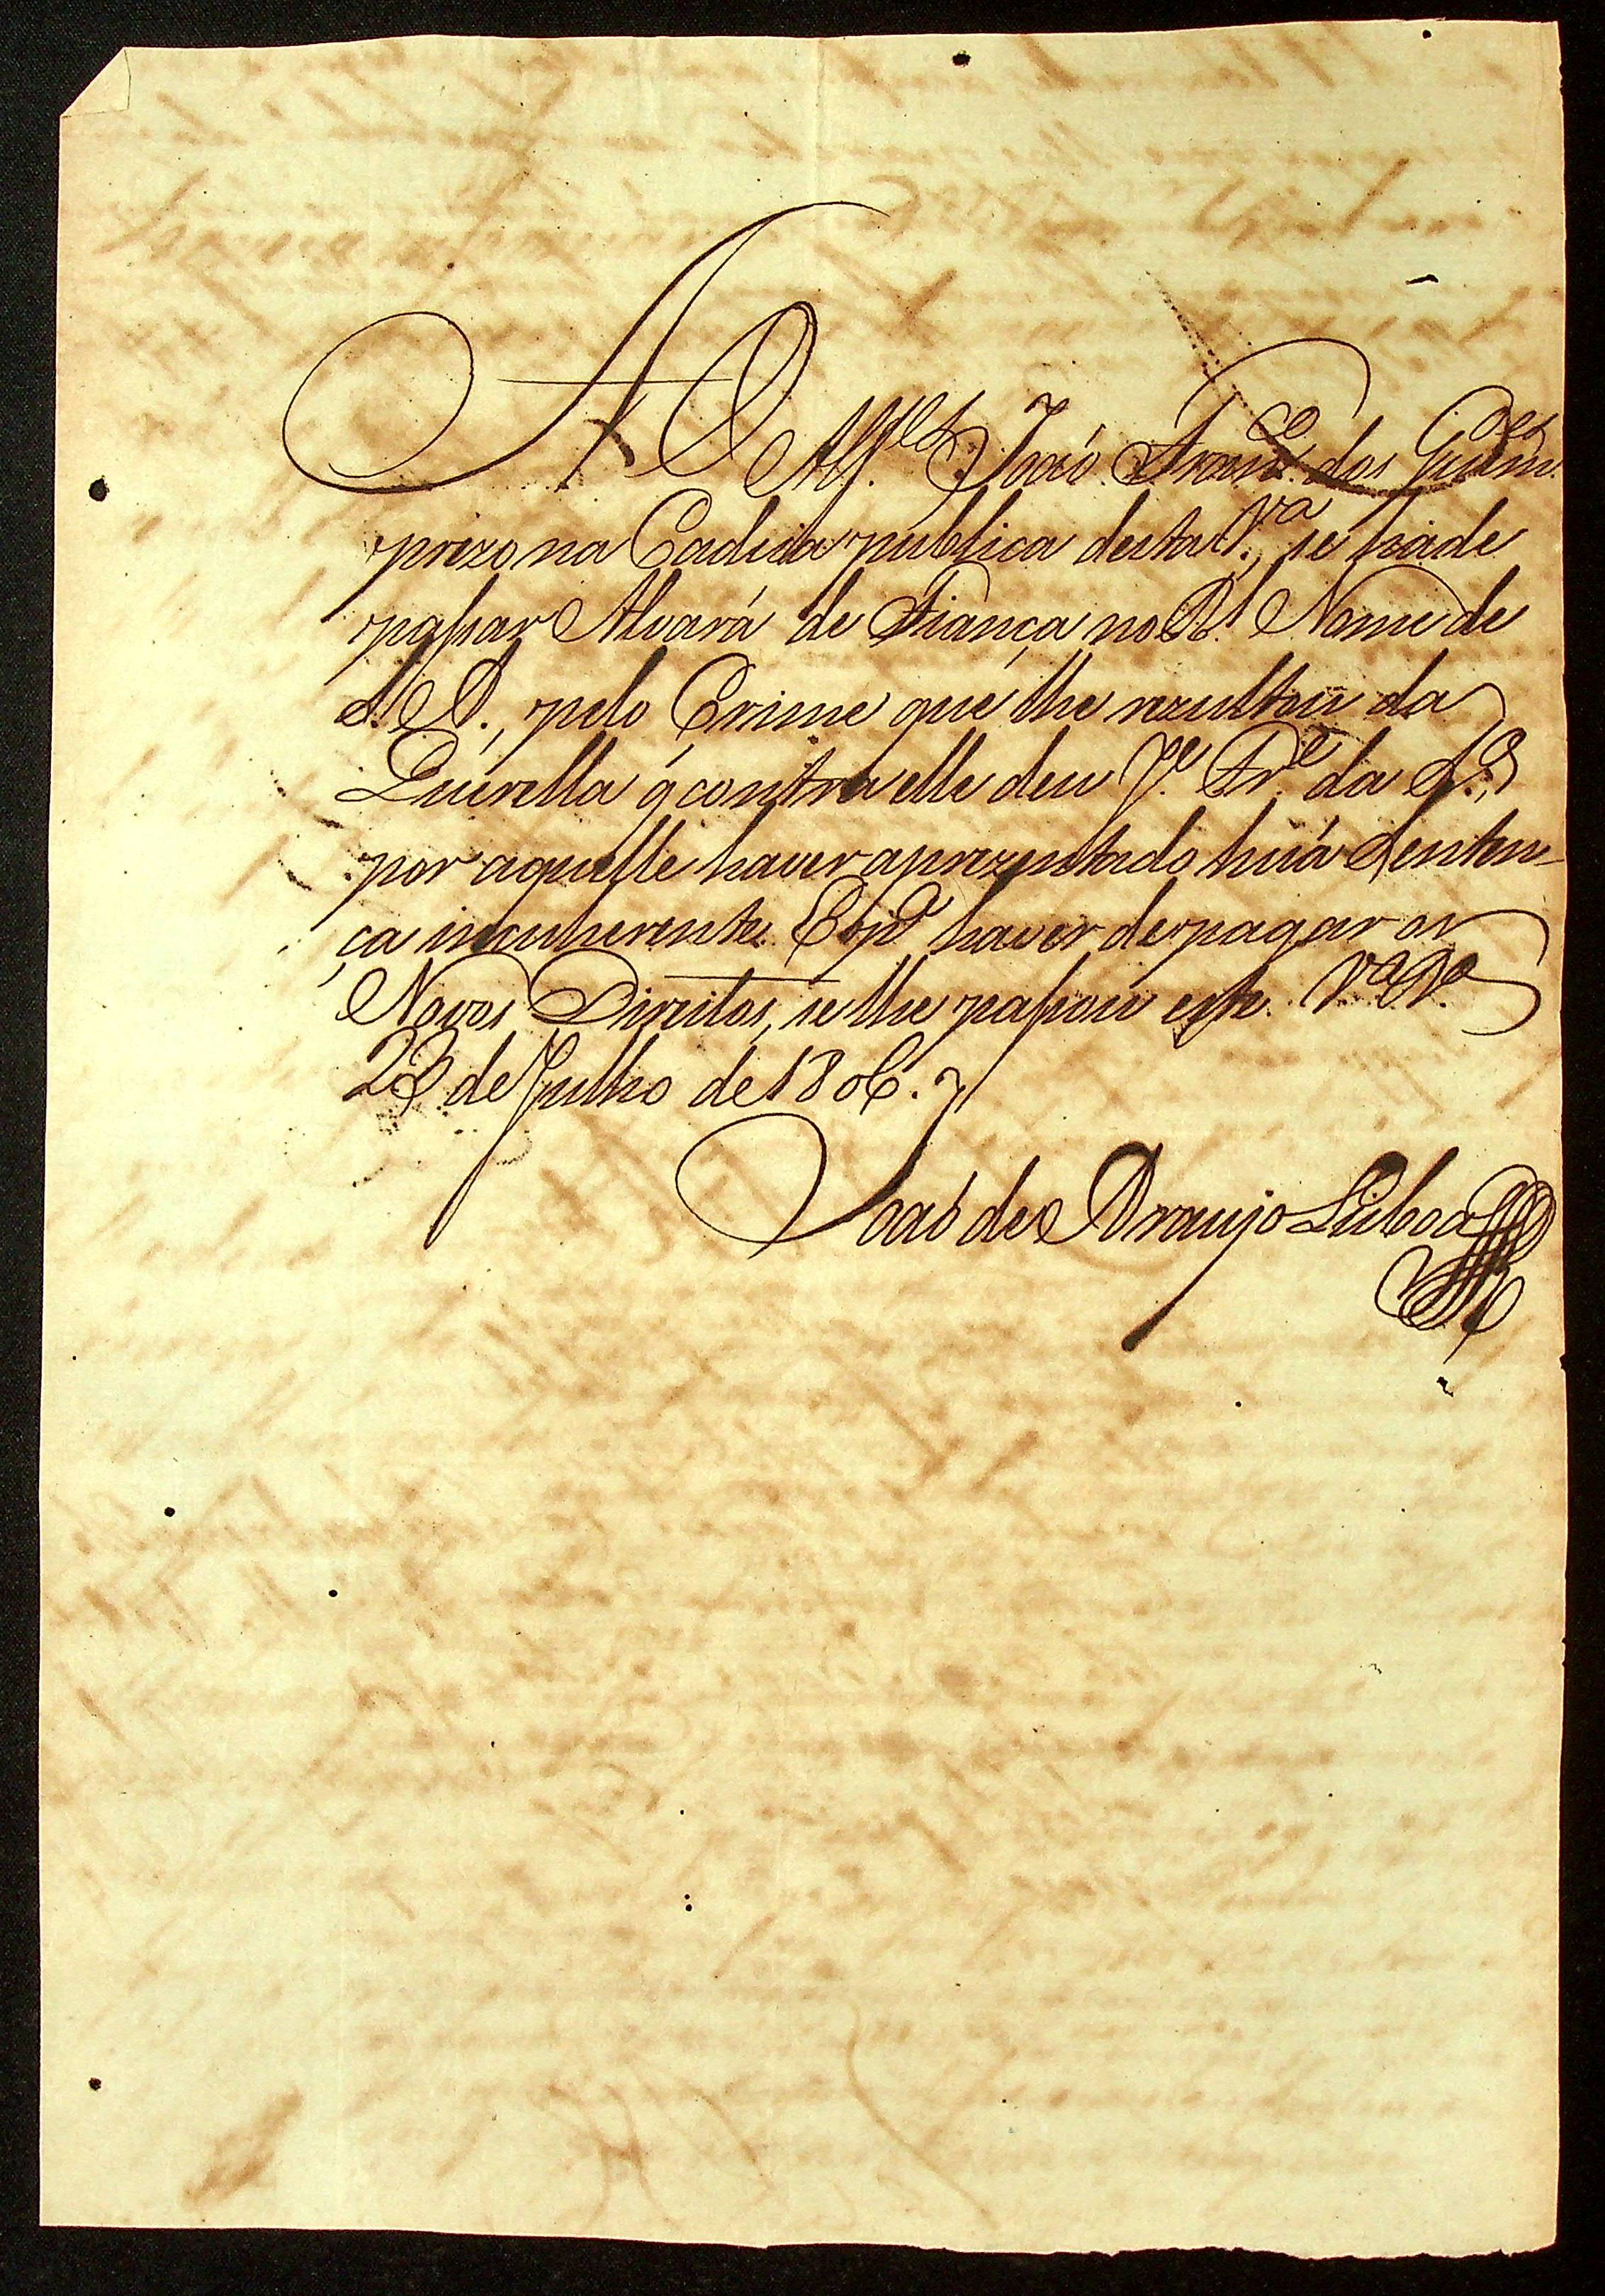 Ao Alf.es João Franc.co dos Guim.es
prezo na Cadeia publica desta V.a, se hade
passar Alvará de Fiança no R.l Nome de
S. A., pelo Crime que lhe rezultou da
Querella q̃ contra elle deu J.e Fr.e da S.a,
por aquelle haver aprezentado huá Senten-
ça incuherente. E p.a haver de pagar os
Novos Direitos, se lhe passou este. V.a R.a
23 de Julho de 1806.
Joaõ de Araujo Lisboa